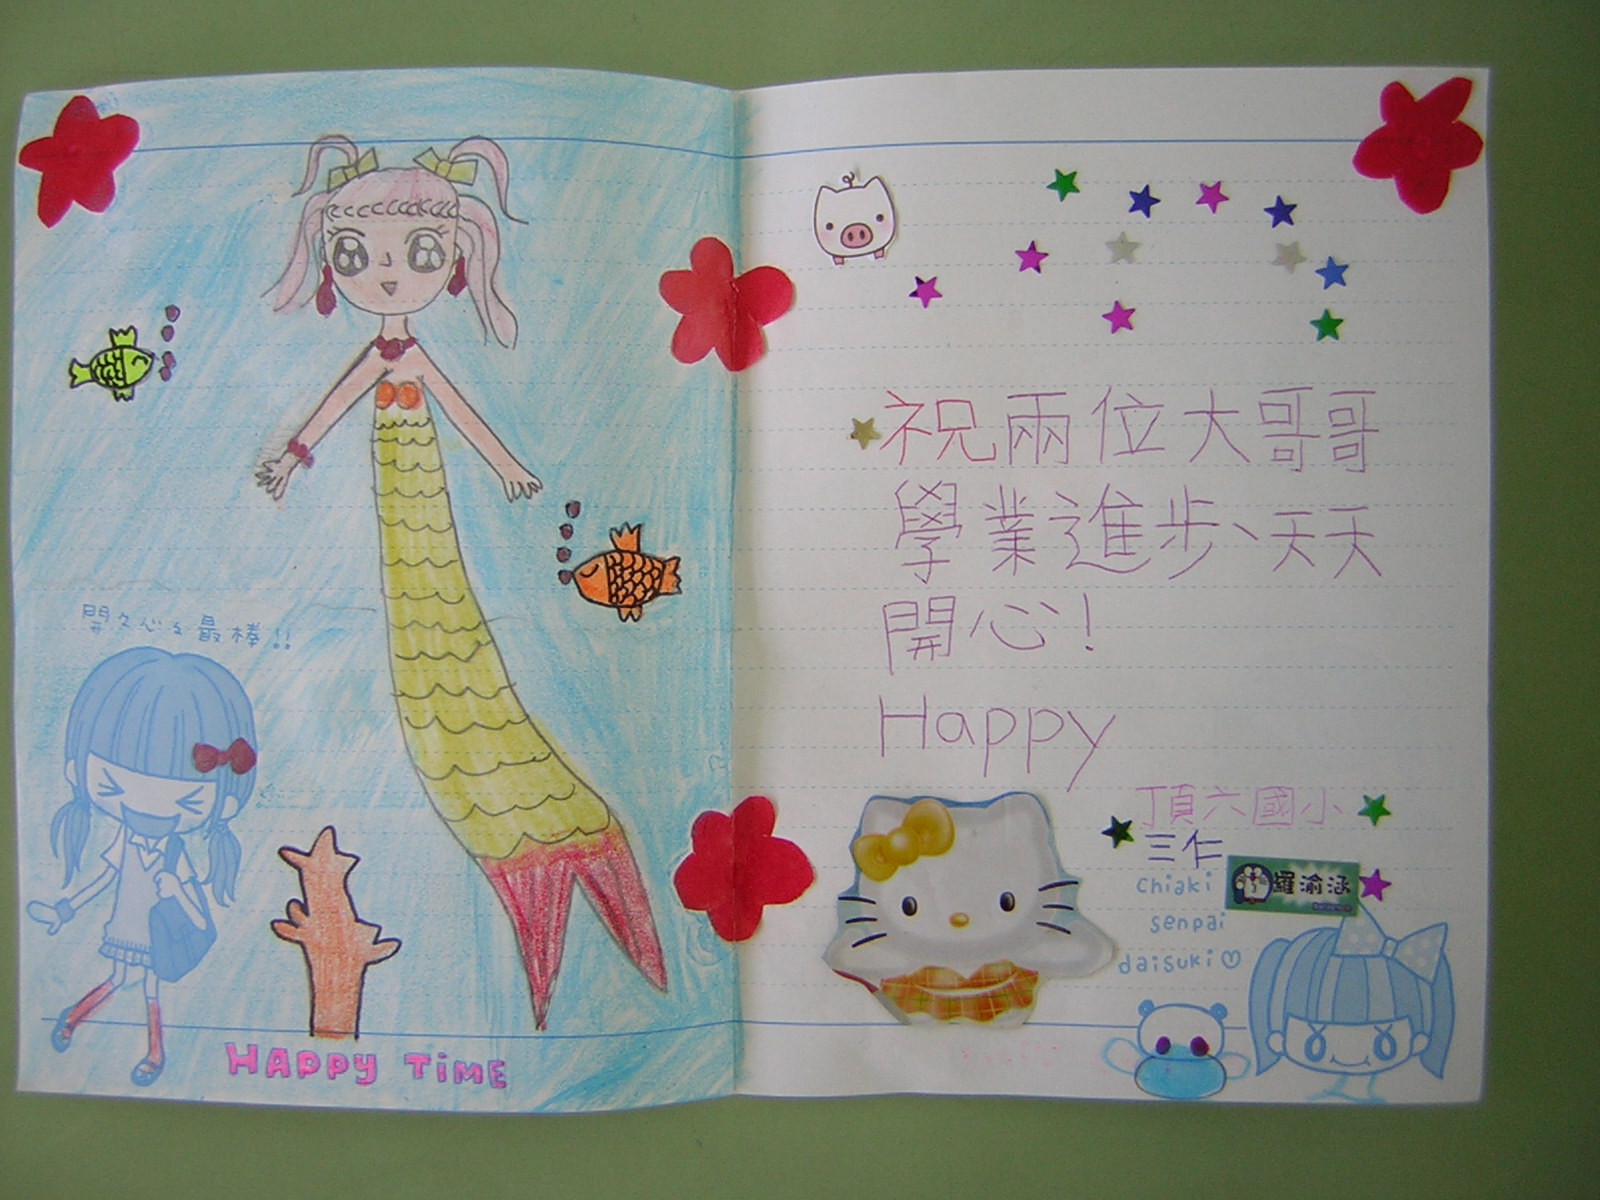 開ㄑ心ㄑ最棒!!
HAPPY TiME
祝兩位大哥哥
學業進步、天天
開心！
Happy
頂六國小
三仁
羅渝涵
chiaki
senpai
daisuki♡